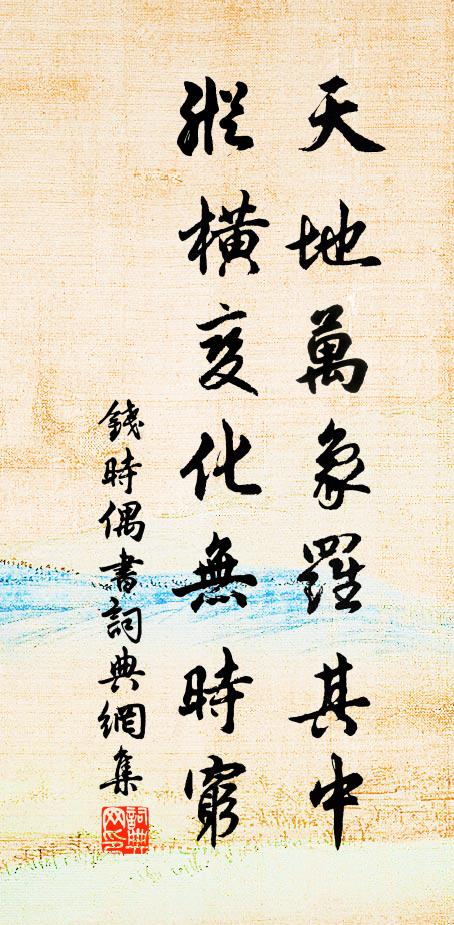 天地萬象羅其中
縱橫變化無時窮
錢時偶書詞典網集
詞典網印